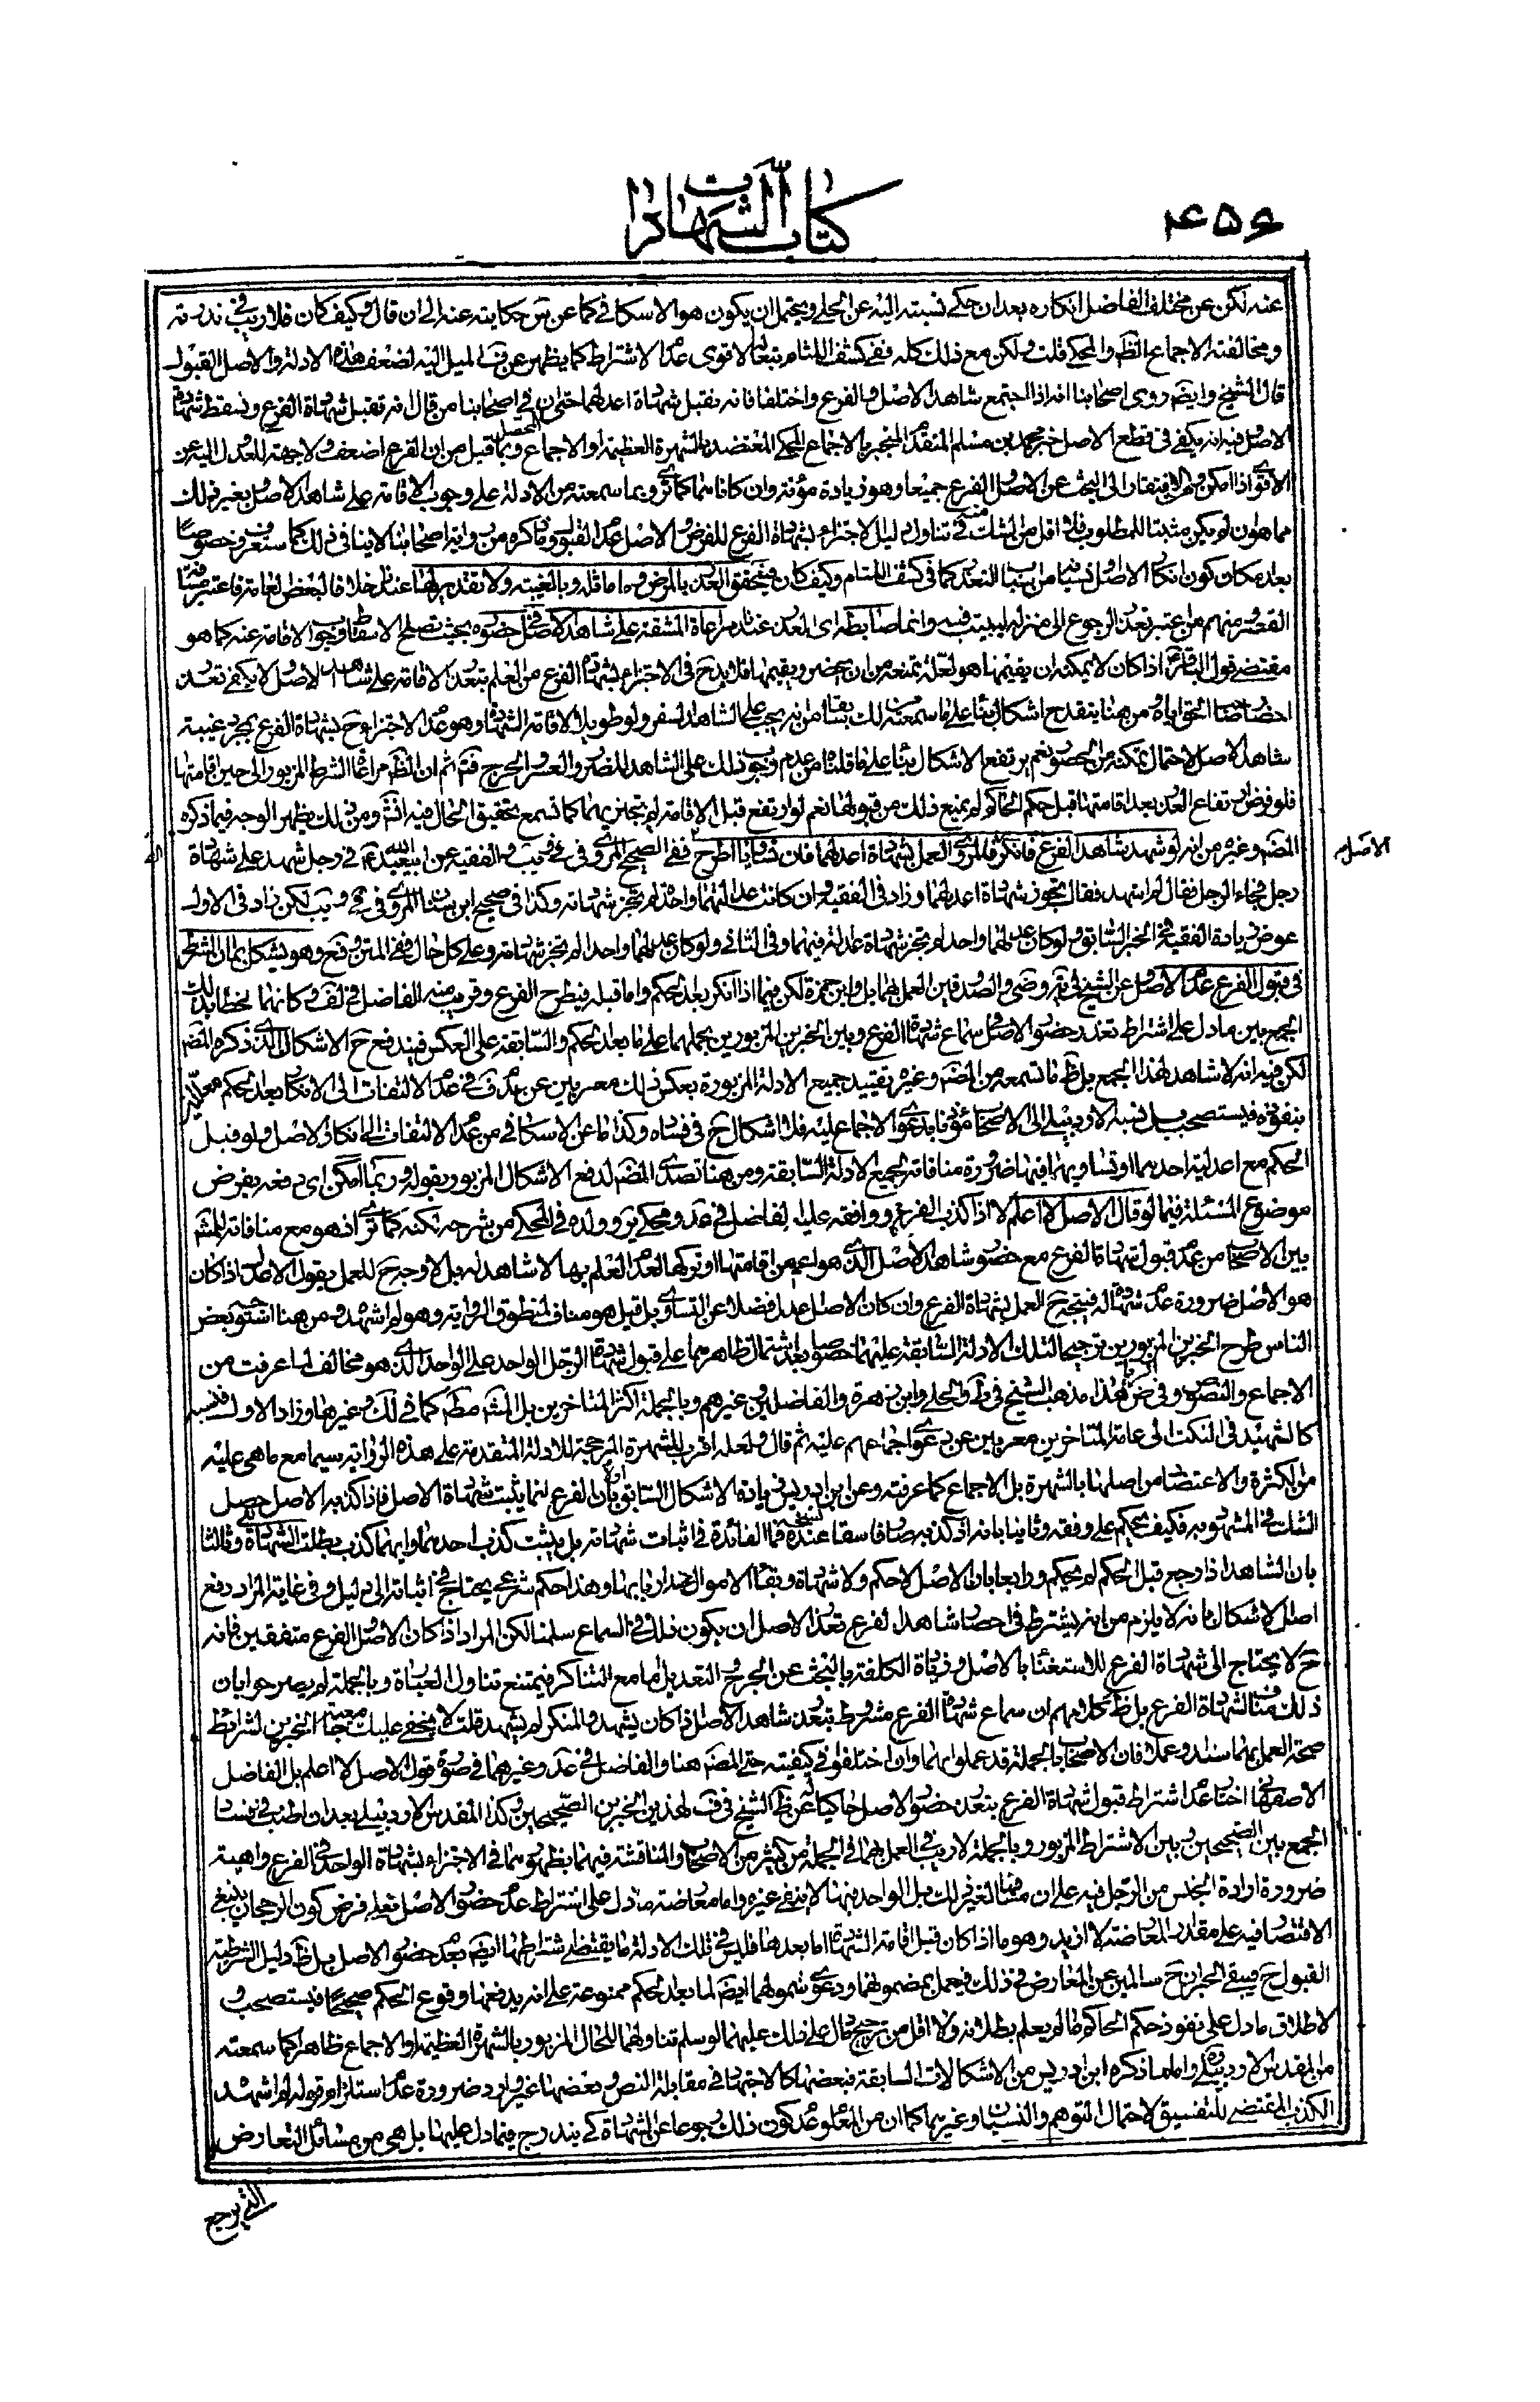 ٤٥٦
كتاب الشهادات
عنه لكن عن مختلف الفاضل انكاره بعد ان حكى نسبته اليه عن الحلي ويحتمل ان يكون هو الاسكافي كما عن حكايته عنه الى ان قال وكيف كان فلا ريب في ندرته
ومخالفته الاجماع الظ والمحكي قلت ولكن مع ذلك كله ففي كشف اللثام تبعا الاقوى عدم الاشتراط كما يظهر عن الميل اليه لضعف هذه الادلة والاصل القبول
قال الشيخ وايضا روى اصحابنا انه اذا اجتمع شاهد الاصل والفرع واختلفا فانه تقبل شهادة اعدلهما حتى ان في اصحابنا من قال انه تقبل شهادة الفرع وتسقط شهادة
الاصل فيه انه يكفي في قطع الاصل خبر محمد بن مسلم المتقدم المنجبر بالاجماع المحكي المعتضد بالشهرة العظيمة او الاجماع المحصل وبما قيل من ان الفرع اضعف ولا جهة للعدول اليه عن
الاقوى اذا امكن و الافتقار الى البحث عن الاصل والفرع جميعا وهو زيادة مؤنة وان كانا منهما كما ترى وبما سمعته من الادلة على وجوب الاقامة على شاهد الاصل بغير ذلك
مما هو ان لم يكن مثبتا للمطلوب فلا اقل من الشك في تناول دليل الاجتزاء بشهادة الفرع للفرض والاصل عدم القبول وما ذكره من رواية اصحابنا لا ينافي ذلك كما ستعرف وخصوصا
بعد مكان كون انكار الاصل نسيانه من اسباب التعذر كما في كشف اللثام وكيف كان فيتحقق العذر بالمرض وما ماثله وبالغيبة ولا تقدير لها عندنا خلافا لبعض العامة فاعتبر مسافة
القصر ومنهم من اعتبر تعذر الرجوع الى منزله ليبيت فيه وانما ضابطه اى العذر عندنا مراعاة المشقة على شاهد الاصل في حضوره بحيث تصلح لاسقاط وجوب الاقامة عنه كما هو
مقتضى قول الباقر اذا كان لا يمكنه ان يقيمها هو لعلة تمنعه من ان يحضر ويقيمها فلا يقدح في الاجتزاء بشهادة الفرع من العلم بتعذر الاقامة على شاهد الاصل لا يكفي تعذر
احضار صاحب الحق اياه ومن هنا ينقدح اشكال بناء على ما سمعته سابقا من انه يجب على الشاهد السفر ولو طويلا لاقامة الشهادة وهو عدم الاجتزاء ح بشهادة الفرع بمجرد غيبة
شاهد الاصل لاحتمال تمكنه من الحضور نعم يرتفع الاشكال بناء على ما قلناه من عدم وجوب ذلك على الشاهد للضرر والعسر والحرج فتم ثم ان الظ مراعاة الشرط المزبور الى حين اقامتها
فلو فرض ارتفاع العذر بعد اقامتها قبل حكم الحاكم لم يمنع ذلك من قبولها نعم لو ارتفع قبل الاقامة لم يجتزء بهما كما تسمع تحقيق الحال فيه انش ومن ذلك يظهر الوجه فيما ذكره
المص وغيره من انه لو شهد شاهد الفرع فانكر الاصل فالمروى العمل بشهادة اعدلهما فان تساويا اطرح الفرع ففي الصحيح المروي في والفقيه عن ابيعبد الله ع في رجل شهد على شهادة
رجل فجاء الرجل فقال لم اشهد فقال تجوز شهادة اعدلهما وزاد في الفقيه وان كانت عدالتهما واحدة لم تجز شهادته وكذا في صحيح ابن سنان المروي في لكن زاد في الاول
عوض زيادة الفقيه في الخبر السابق ولو كان عدلهما واحدا لم تجز شهادة عدالة فيهما وفي الثاني ولو كان عدلهما واحدا لم تجز شهادته وعلى كل حال ففي المتن وهو يشكل بما ان الشرط
في قبول الفرع عدم الاصل عن الشيخ في والصدوقين العمل بهما بل وابن حمزة لكن فيما اذا انكر بعد الحكم واما قبله فيطرح الفرع وقريب منه الفاضل في لف وكانهما لحظا بذلك
الجمع بين ما دل على اشتراط تعذر حضور الاصل في سماع شهادة الفرع وبين الخبرين المزبورين بحملهما على ما بعد الحكم والسابقة على العكس فيندفع ح الاشكال الذي ذكره المص
لكن فيه انه لا شاهد لهذا الجمع بل ظ ما تسمعه من المص وغيره تقييد جميع الادلة المزبورة بعكس ذلك معربين عن عدم الالتفات الى الانكار بعد الحكم معللين
بنفوذه فيستصحب بل نسبه الاردبيلي الى الاصحاب مؤيدا بدعوى الاجماع عليه فلا اشكال ح في فساده وكذا ما عن الاسكافي من عدم الالتفات الى انكار الاصل ولو قبل
الحكم مع اعدلية احدهما او تساويهما فيها ضرورة منافاته لجميع الادلة السابقة ومن هنا تصدى المص لدفع الاشكال المزبور بقوله وربما امكن اى دفعه بفرض
موضوع المسئلة فيما لو قال الاصل لا اعلم لا اذا كذب الفرع ووافقه عليه الفاضل في وولده في المحكي من شرحه لكنه كما ترى اذ هو مع منافاته للمش
بين الاصحاب من عدم قبول شهادة الفرع مع حضور شاهد الاصل الذي هو اعم من اقامتها او تركها لعدم العلم بها لا شاهد له بل لا وجه ح للعمل بقول الاعدل اذا كان
هو الاصل ضرورة عدم شهادة له فيتجه ح العمل بشهادة الفرع وان كان الاصل اعدل فضلا عن التساوي بل قيل هو مناف لمنطوق الرواية وهو لم اشهد ومن هنا استوجه بعض
الناس طرح الخبرين المزبورين ترجيحا لتلك الادلة السابقة عليهما خصوصا بعد اشتمال ظاهرهما على قبول شهادة الرجل الواحد على الواحد الذي هو مخالف لما عرفت من
الاجماع والنصوص وفي هذا مذهب الشيخ في ط والحلي وابن زهرة والفاضلين وغيرهم وبالجملة اكثر المتاخرين بل المش مطلقا كما في لك وغيرها وزاد الاول فنسبه
كالشهيد في النكت الى عامة المتاخرين معربين عن دعوى اجماعهم عليه ثم قال ولعله اقرب للشهرة المرجحة للادلة المتقدمة على هذه الرواية سيما مع ما هي عليه
من الكثرة والاعتضاد من اصلها بالشهرة بل الاجماع كما عرفته وعن ابن ادريس زيادة الاشكال السابق اولا بان الفرع انما يثبت شهادة الاصل فاذا كذبه الاصل حصل
الشك في المشهود به فكيف يحكم على وفقه وثانيا بانه اذا كذبه صار فاسقا عنده فما الفائدة في اثبات شهادته بل يثبت كذب احدهما وايهما كذب بطلت الشهادة وثالثا
بان الشاهد اذا رجع قبل الحكم لم يحكم ورابعا بان الاصل لا حكم ولا شهادة وبقاء الاموال عند اربابها وهذا حكم شرعي يحتاج في اثباته الى دليل وفي غاية المراد دفع
اصل الاشكال بانه لا يلزم من انه يشترط في احضار شاهد الفرع تعذر الاصل ان يكون ذلك في السماع سلمنا لكن المراد اذا كان الاصل والفرع متفقين فانه
ح لا يحتاج الى شهادة الفرع للاستغناء بالاصل وزيادة الكلفة بالبحث عن الجرح والتعديل اما مع التناكر فيمتنع تناول العبارة وبالجملة لم يصرحوا بان
ذلك مناف لشهادة الفرع بل ظ كلامهم ان سماع شهادة الفرع مشروط بتعذر شاهد الاصل اذا كان يشهد والمنكر لم يشهد قلت لا يخفى عليك جامعية الخبرين لشرائط
صحة العمل بهما سندا وعملا فان الاصحاب بالجملة قد عملوا بهما وان اختلفوا في كيفيته حتى المص هنا والفاضل في عد وغيرهما في صورة قول الاصل لا اعلم بل الفاضل
الاصفهاني اختار عدم اشتراط قبول شهادة الفرع بتعذر حضور الاصل حاكيا له عن ظ الشيخ في لهذين الخبرين الصحيحين وكذا المقدس الاردبيلي بعد ان اطنب في فساد
الجمع بين الصحيحين وبين الاشتراط المزبور وبالجملة لا ريب في العمل بهما في الجملة من كثير من الاصحاب والمناقشة فيهما بظهورهما في الاجتزاء بشهادة الواحد في الفرع واهية
ضرورة ارادة الجنس من الرجل فيه على ان منافاته لغير ذلك بل الواحد منها لا ينفي غيره واما معارضته ما دل على اشتراط عدم حضور الاصل فعلى فرض كون الرجحان ينبغي
الاقتصار فيه على مقدار المعارضة لا ازيد وهو ما اذا كان قبل اقامة الشهادة اما بعدها فليس في تلك الادلة ما يقتضي اشتراطها ايض بعدم حضور الاصل بل ظ دليل الشرطية
القبول ح فيبقى الخبران ح سالمين عن المعارض في ذلك فيعمل بمضمونهما ودعوى شمولهما ايض لما بعد الحكم ممنوعة على انه يدفعها وقوع الحكم صحيحا فيستصحب و
لاطلاق ما دل على نفوذ حكم الحاكم ما لم يعلم بطلانه ولا اقل من ترجيح ما دل على ذلك عليهما لو سلم تناولهما للحال المزبور بالشهرة العظيمة او الاجماع ظاهرا كما سمعته
من المقدس الاردبيلي واما ما ذكره ابن ادريس من الاشكالات السابقة فبعضها كالاجتهاد في مقابلة النص وبعضها غير وارد ضرورة عدم استلزام قوله لم اشهد
الكذب المقتضي للتفسيق لاحتمال التوهم والنسيان وغيرهما كما ان من المعلوم عدم كون ذلك رجوعا عن الشهادة كي يندرج فيما دل عليها بل هي من مسائل التعارض
الاصل م
التي يرجع